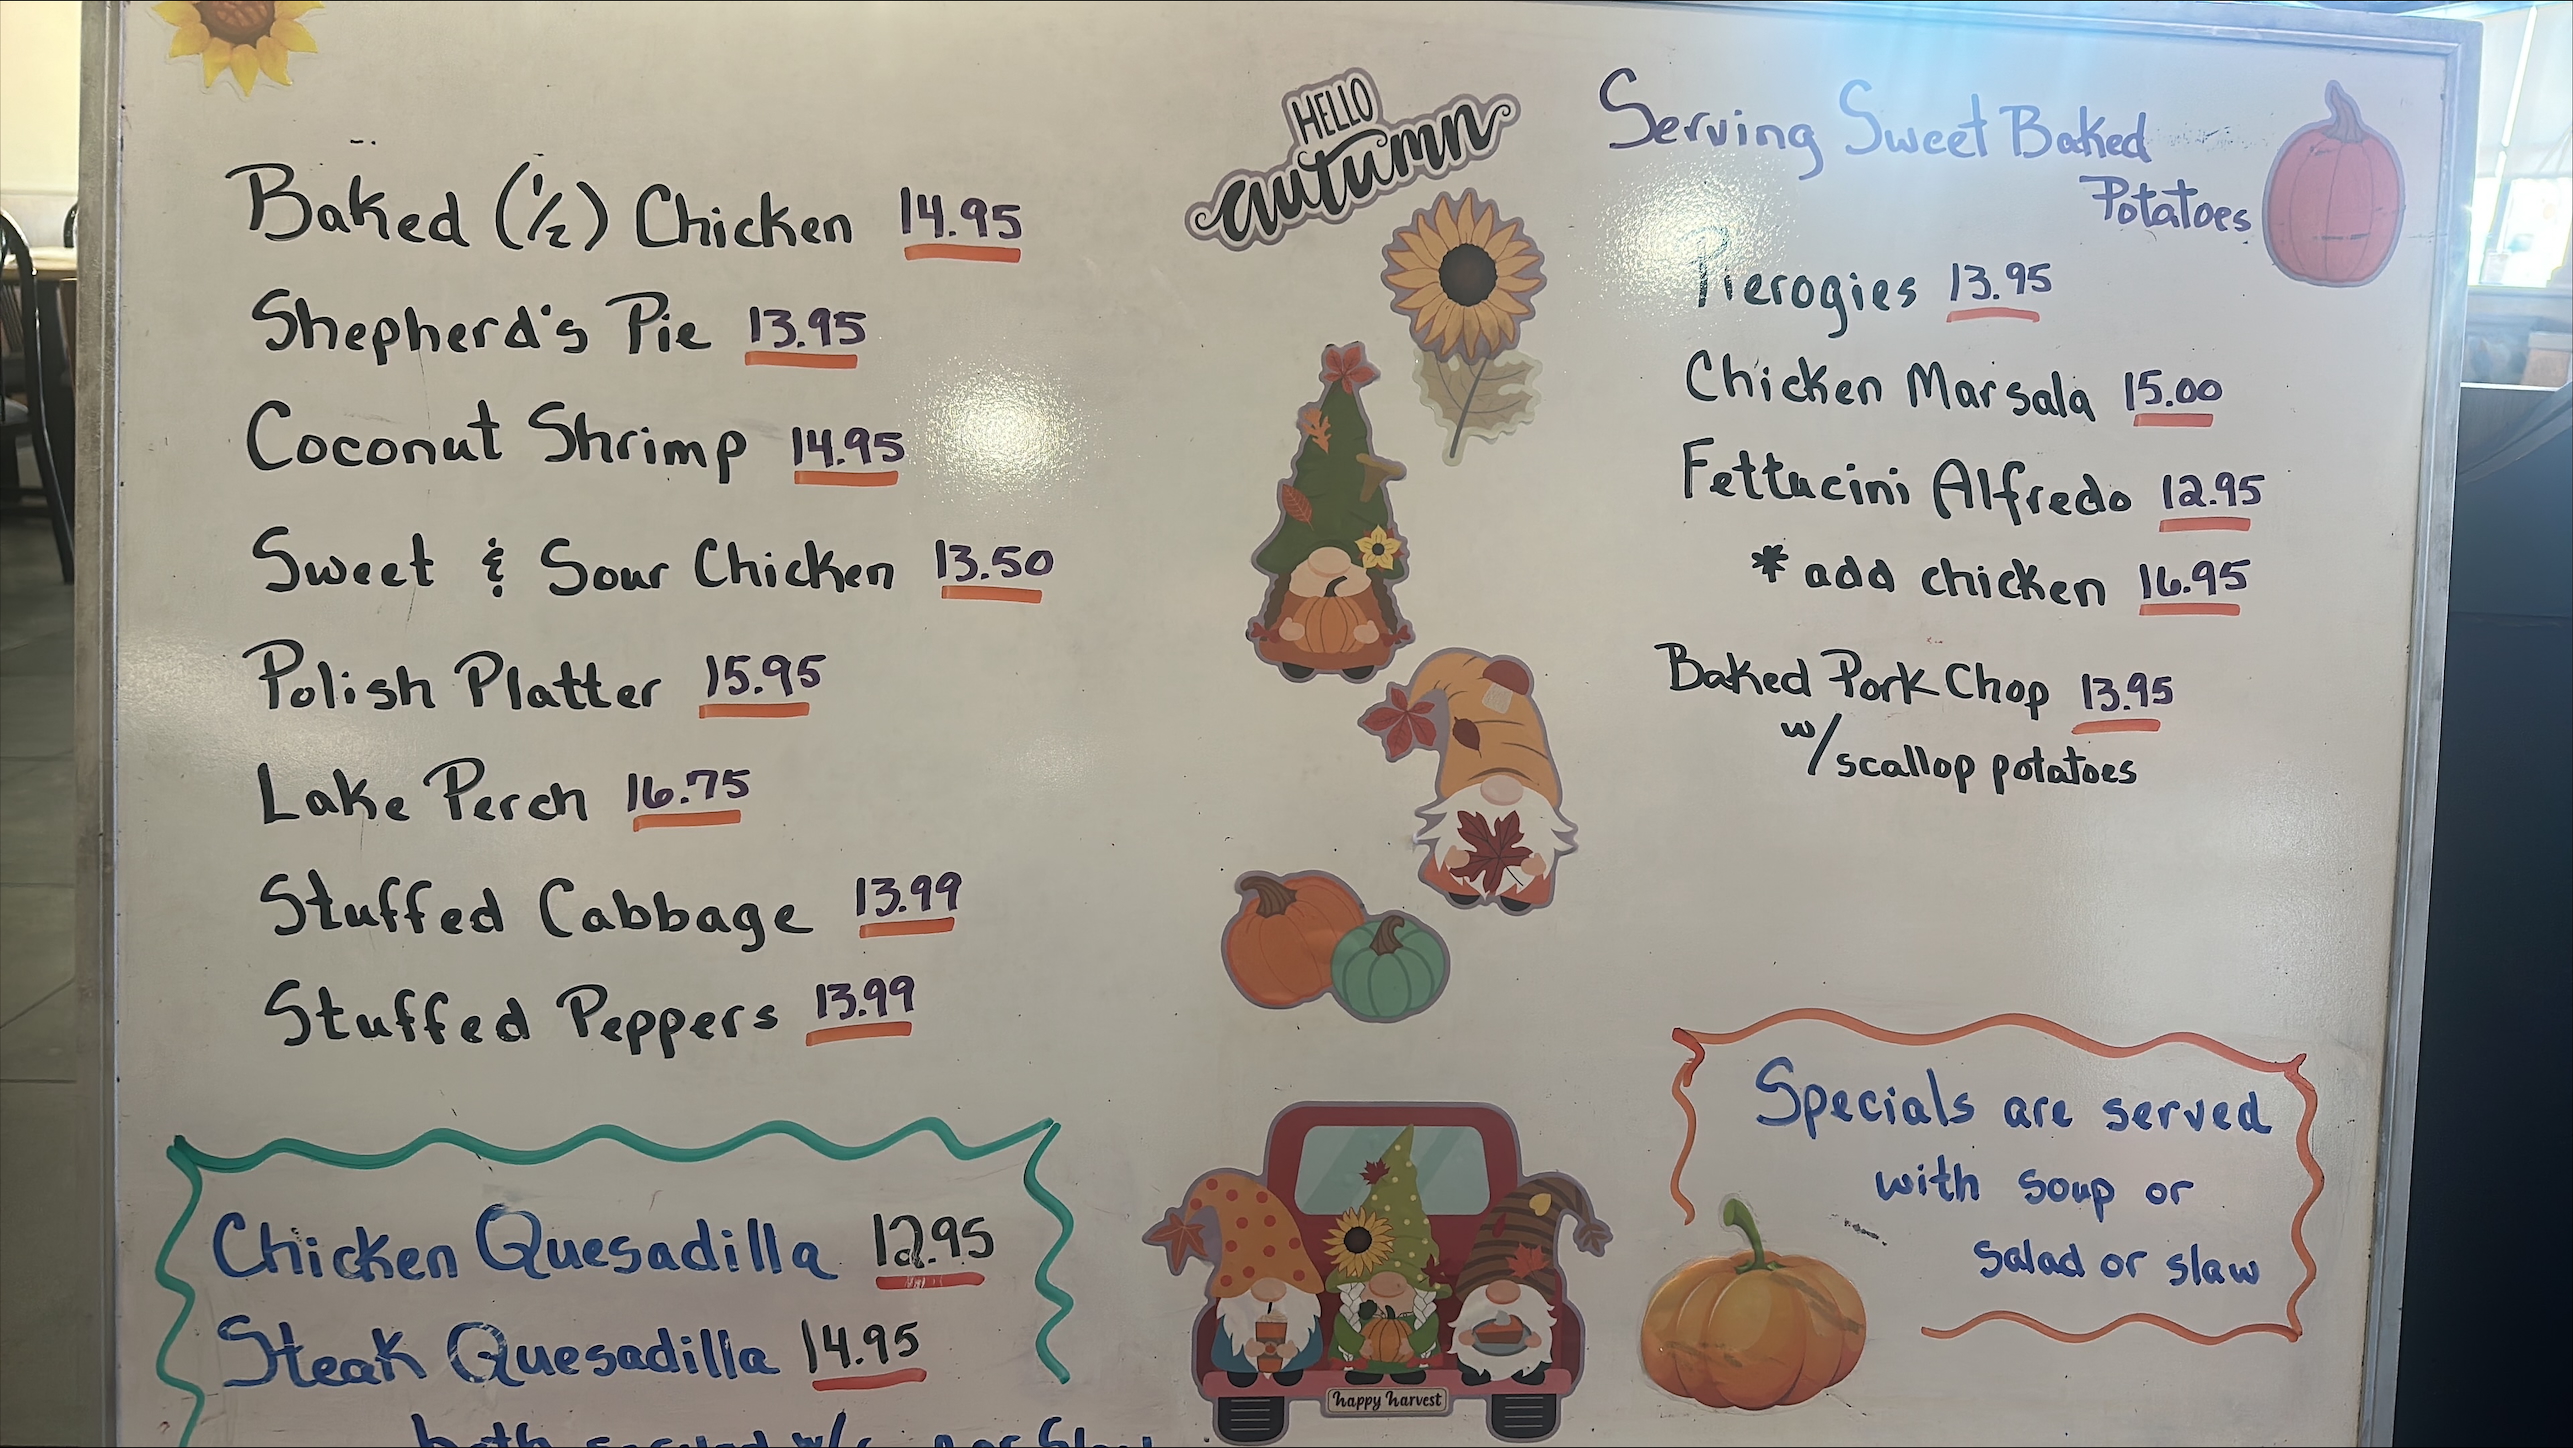 Baked (1/2) Chicken 14.95
Shepherd's Pie 13.95
Coconut Shrimp 14.95
Sweet & Sour Chicken 13.50
Polish Platter 15.95
Lake Perch 16.75
Stuffed Cabbage 13.99
Stuffed Peppers 13.99
Chicken Quesadilla 12.95
Steak Quesadilla 14.95
both served w/
or Slaw
HELLO
autumn
happy harvest
Serving Sweet Baked
Potatoes
Pierogies 13.95
Chicken Marsala 15.00
Fettucini Alfredo 12.95
* add chicken 16.95
Baked Pork Chop 13.95
w/scallop potatoes
Specials are served
with soup or
salad or slaw